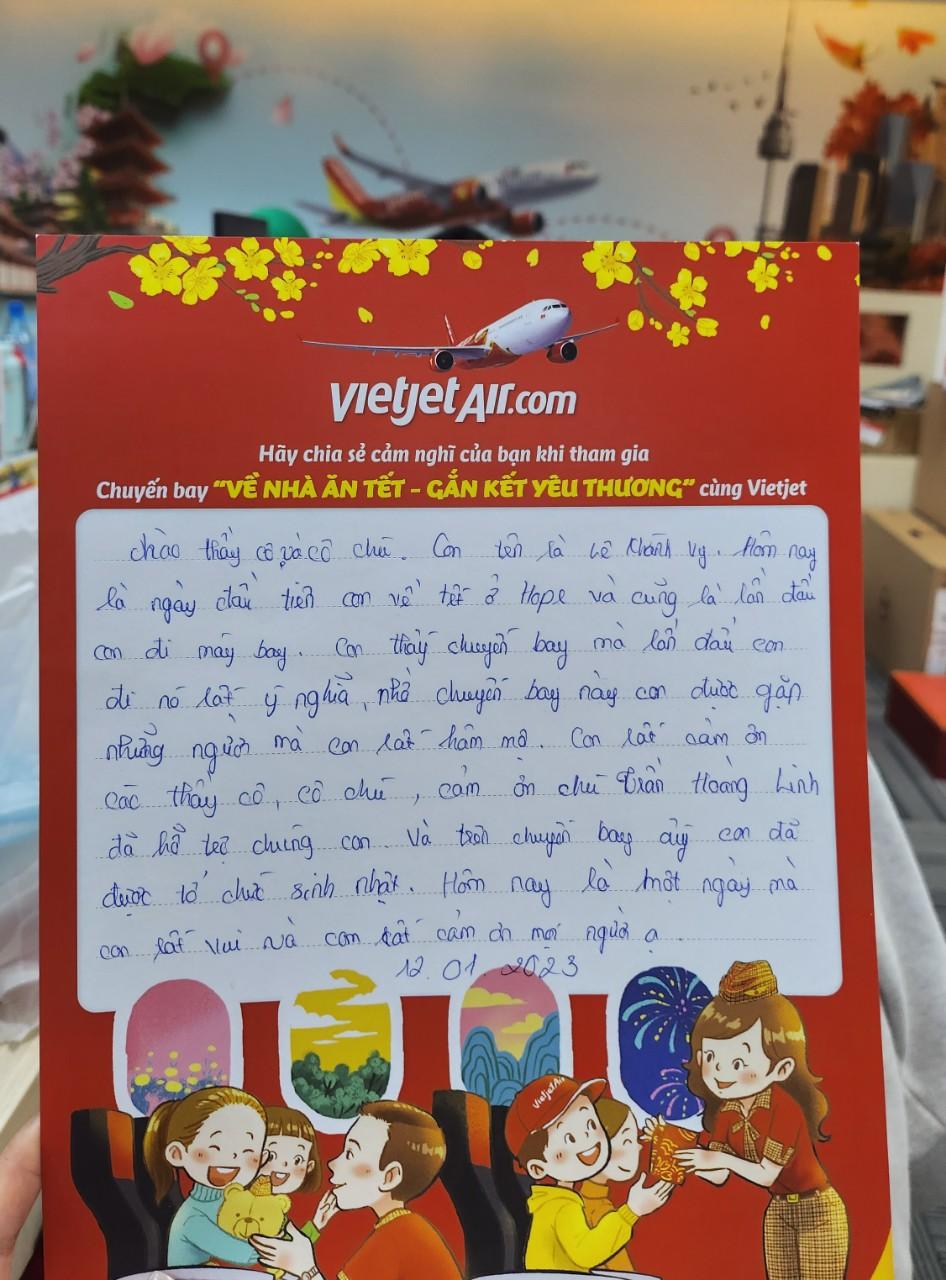 vietjetAir.com
Hãy chia sẻ cảm nghĩ của bạn khi tham gia
Chuyến bay "VỀ NHÀ ĂN TẾT - GẮN KẾT YÊU THƯƠNG" cùng Vietjet
chào thầy cô và cô chú. Con tên là Lê Khánh Vy. Hôm nay
là ngày đầu tiên con về tết ở Hope và cũng là lần đầu
con đi máy bay. Con thấy chuyến bay mà lần đầu con
đi nó lất ý nghĩa, nhờ chuyến bay này con được gặp
những người mà con lất hâm mộ. Con lất cảm ơn
các thầy cô, cô chú, cảm ơn chú Trần Hoàng Linh
đã hỗ trợ chúng con. Và trên chuyến bay ấy con đã
được tổ chức sinh nhật. Hôm nay là một ngày mà
con lất vui và con rất cảm ơn mọi người ạ.
12.01.2023
VietjetAir